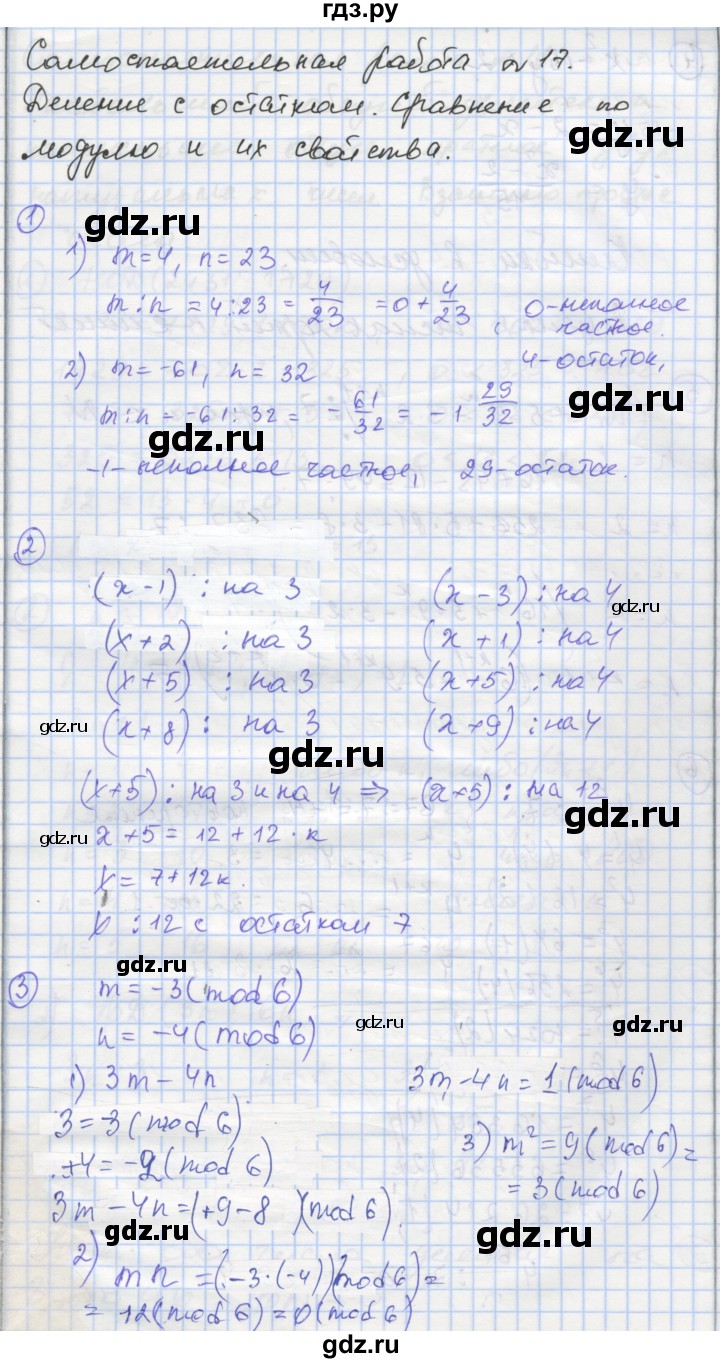 гдз.ру
Самостоятельная работа №17.
Деление с остатком. Сравнение по
модулю и их свойства.
① gdz.ru
1) m=4, n=23.
m:n = 4:23 = 4/23 = 0 + 4/23, 0-неполное частное.
4-остаток,
2) m=-61, n=32
gdz.ru
m:n=-61:32= -61/32 = -1 29/32
gdz.ru
-1- неполное частное, 29-остаток.
②
(x-1) : на 3 (x-3) : на 4
gdz.ru
(x+2) : на 3 (x+1) : на 4
(x+5) : на 3 (x+5) : на 4
gdz.ru
(x+8) : на 3 (x+9) : на 4
gdz.ru
(x+5) : на 3 и на 4 ⇒ (x+5) : на 12
gdz.ru
x+5=12+12·k
x=7+12k.
x :12 с остатком 7
gdz.ru
③ m=-3(mod 6)
n=-4(mod 6)
gdz.ru gdz.ru
1) 3m-4n 3m-4n=1(mod 6)
3=-3(mod 6)
3) m²=9(mod 6)=
=3(mod 6)
3m-4n=(+9-8)(mod 6)
gdz.ru gdz.ru
2) mn=(-3·(-4))(mod 6)=
=12(mod 6)=0(mod 6)
gdz.ru